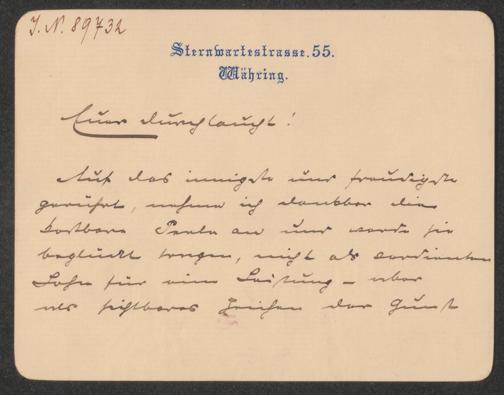 I. N. 89732
Sternwartestrasse. 55.
Währing.
Euer Durchlaucht!
Auf das innigste und freudigste
gerührt, nehme ich dankbar die
kostbare Perle an und werde sie
beglückt tragen, nicht als verdienten
Lohn für eine Leistung – aber
als sichtbares Zeichen der Gunst